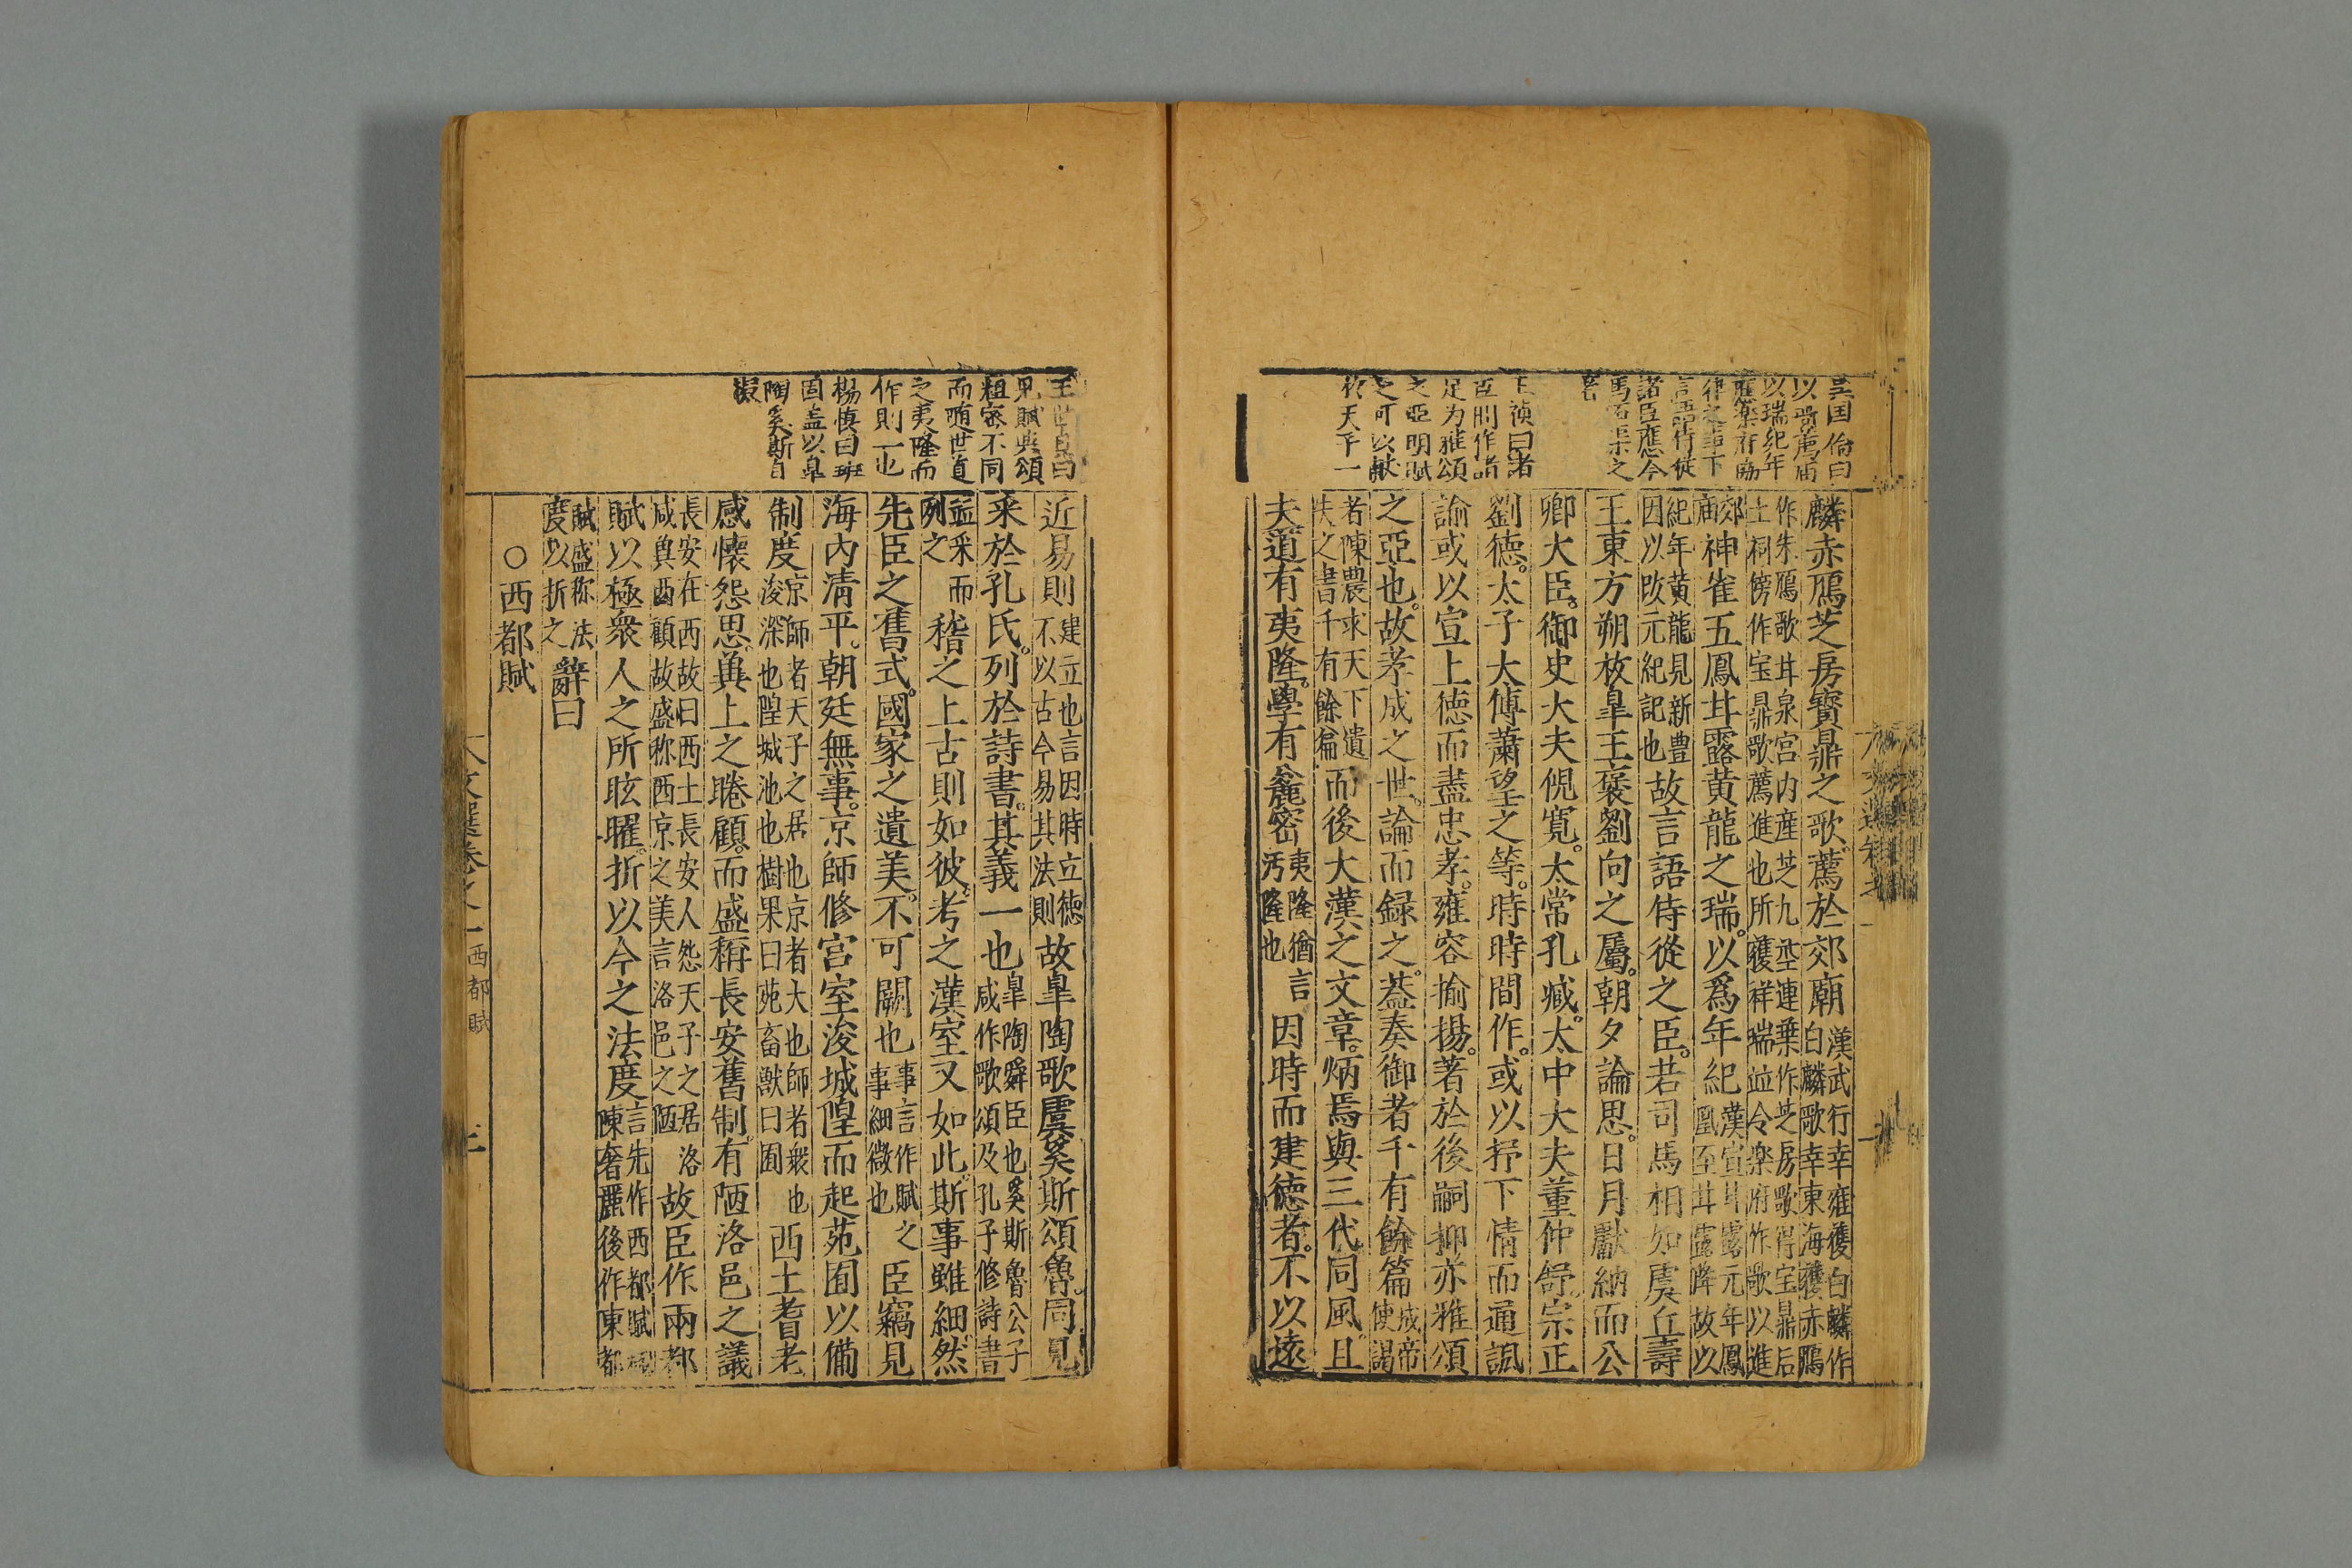 国倫曰
以瑞紀年
律之事下
言語侍從
諸臣應今
馬石渠之
王禎曰諸
臣則作諸
足为雅頌
之亞明賦
之可以献
於天乎一
麟赤鴈芝房寳鼎之歌薦於郊廟漢武行幸雍獲白麟作白麟歌幸東海獲赤鴈
作朱鴈歌甘泉宫内産芝九莖連葉作芝房歌得宝鼎后土祠傍作宝鼎歌薦進也所獲祥瑞並令楽府作歌以進
郊廟神雀五鳳甘露黄龍之瑞。以爲年紀漢宣甘露元年鳳凰至甘露降故以
紀年黄龍見新豊因以改元紀記也故言語侍從之臣。若司馬相如虞丘壽
王東方朔枚皐王襃劉向之屬。朝夕論思。日月獻納而公
卿大臣。御史大夫倪寛。太常孔臧。太中大夫董仲舒。宗正
劉德。太子太傅蕭望之等。時時間作。或以抒下情而通諷
諭或以宣上德而盡忠孝。雍容揄揚。著於後嗣抑亦雅頌
之亞也。故孝成之世。論而録之。葢奏御者千有餘篇成帝使謁
者陳農求天下遺失之書千有餘篇而後大漢之文章。炳焉與三代同風。且
夫道有夷隆。學有麄密夷隆猶言汚隆也因時而建德者。不以遠
王世貞曰
見賦與頌
粗密不同
而隨世道
之夷隆而
作則一也
楊慎曰班
固盖以臯
陶奚斯自
擬
近易則建立也言因時立德不以古今易其法則故臯陶歌虞奚斯頌魯。同見
采於孔氏。列於詩書。其義一也臯陶舜臣也奚斯魯公子咸作歌頌及孔子修詩書
並采而列之稽之上古則如彼。考之漢室又如此。斯事雖細。然
先臣之舊式。國家之遺美。不可闕也事言作賦之事細微也臣竊見
海內清平。朝廷無事。京師修宫室浚城隍而起苑囿以備
制度京師者天子之居也京者大也師者衆也浚深也隍城池也樹果曰苑畜獸曰囿西土耆老
感懷怨思。冀上之睠顧。而盛稱長安舊制。有陋洛邑之議
長安在西故曰西土長安人怨天子之居洛咸兾西顧故盛称西京之美言洛邑之陋故臣作兩都
賦以極衆人之所眩曜。折以今之法度言先作西都賦極陳奢麗後作東都
賦盛称法度以折之辭曰
○西都賦
文選卷之一 西都賦